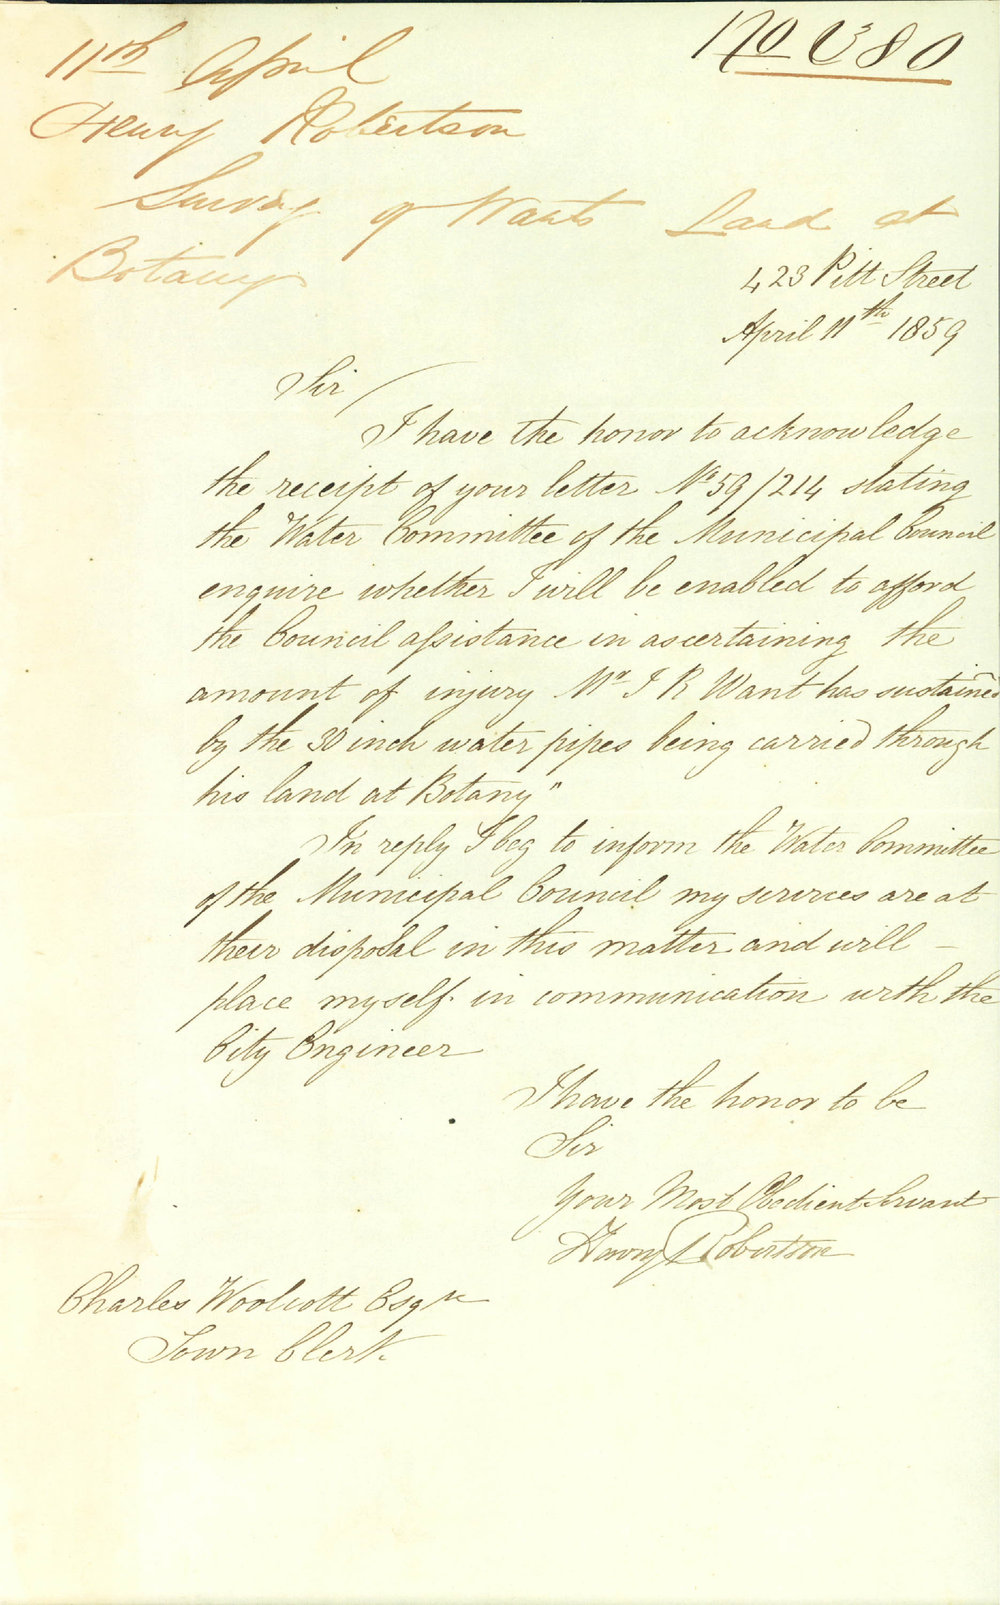 11th April
No 380
Henry Robertson
Survey of Wants Land at
Botany
423 Pitt Street
April 11th 1859
Sir
I have the honor to acknowledge
the receipt of your letter No 59/214 stating
the Water Committee of the Municipal Council
enquire whether I will be enabled to afford
the Council assistance in ascertaining the
amount of injury Mr J R Want has sustained
by the 30 inch water pipes being carried through
his land at Botany"
In reply I beg to inform the Water Committee
of the Municipal Council my services are at
their disposal in this matter and will –
place myself in communication with the
City Engineer
I have the honor to be
Sir
Your Most Obedient Servant
Henry Robertson
Charles Woolcott Esqre
Town Clerk